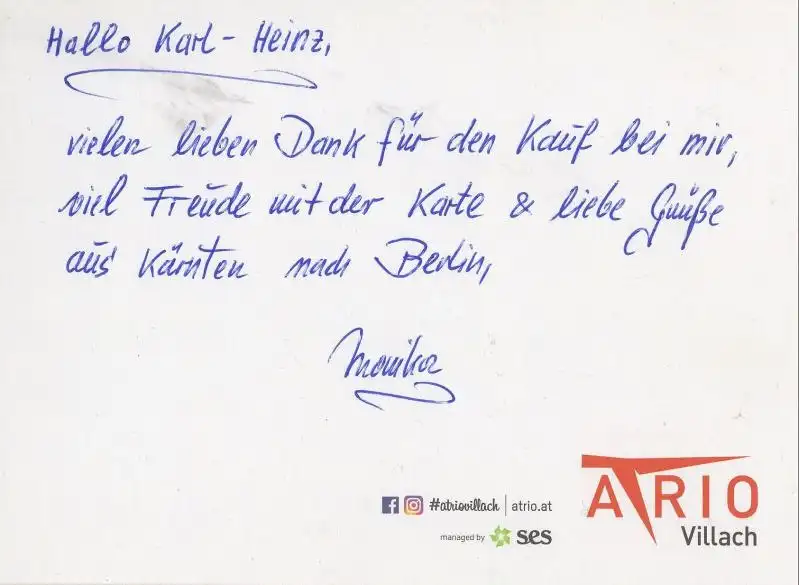 Hallo Karl-Heinz,
vielen lieben Dank für den Kauf bei mir,
viel Freude mit der Karte & liebe Grüße
aus Kärnten nach Berlin,
Monika
#atriovillach | atrio.at
managed by ses
ATRIO
Villach